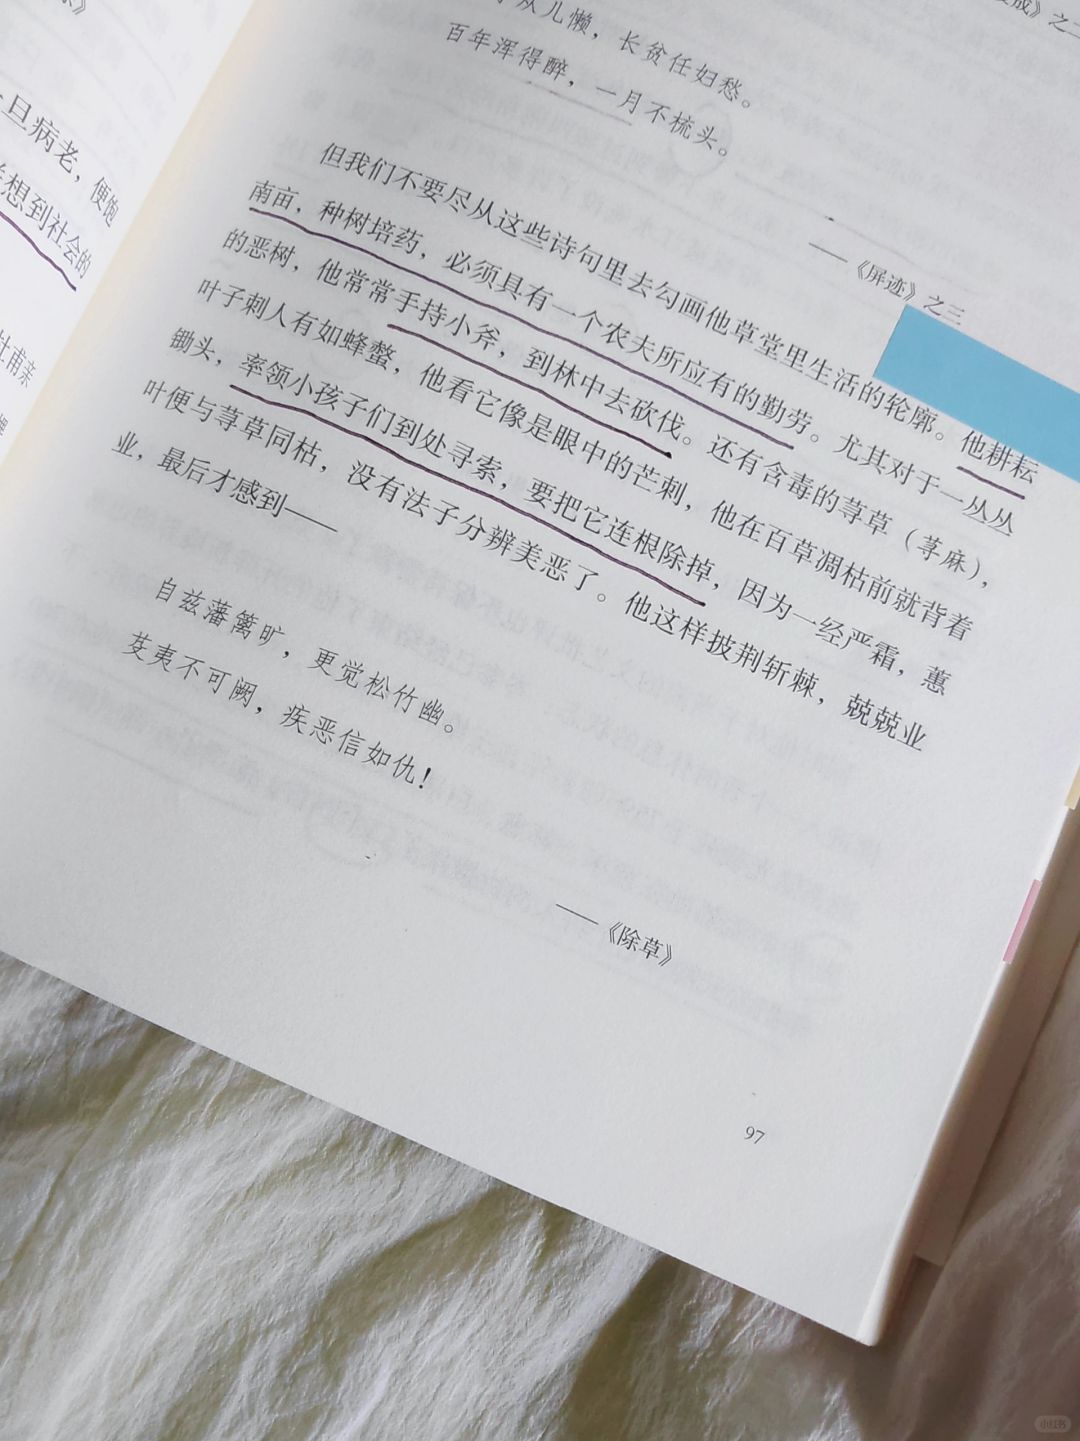 一旦病老，便饱
想到社会的
杜甫亲
之二
从儿懒，长贫任妇愁。
百年浑得醉，一月不梳头。
——《屏迹》之三
但我们不要尽从这些诗句里去勾画他草堂里生活的轮廓。他耕耘
南亩，种树培药，必须具有一个农夫所应有的勤劳。尤其对于一丛丛
的恶树，他常常手持小斧，到林中去砍伐。还有含毒的荨草（荨麻），
叶子刺人有如蜂螫，他看它像是眼中的芒刺，他在百草凋枯前就背着
锄头，率领小孩子们到处寻索，要把它连根除掉，因为一经严霜，蕙
叶便与荨草同枯，没有法子分辨美恶了。他这样披荆斩棘，兢兢业
业，最后才感到——
自兹藩篱旷，更觉松竹幽。
芟夷不可阙，疾恶信如仇！
——《除草》
97
小红书